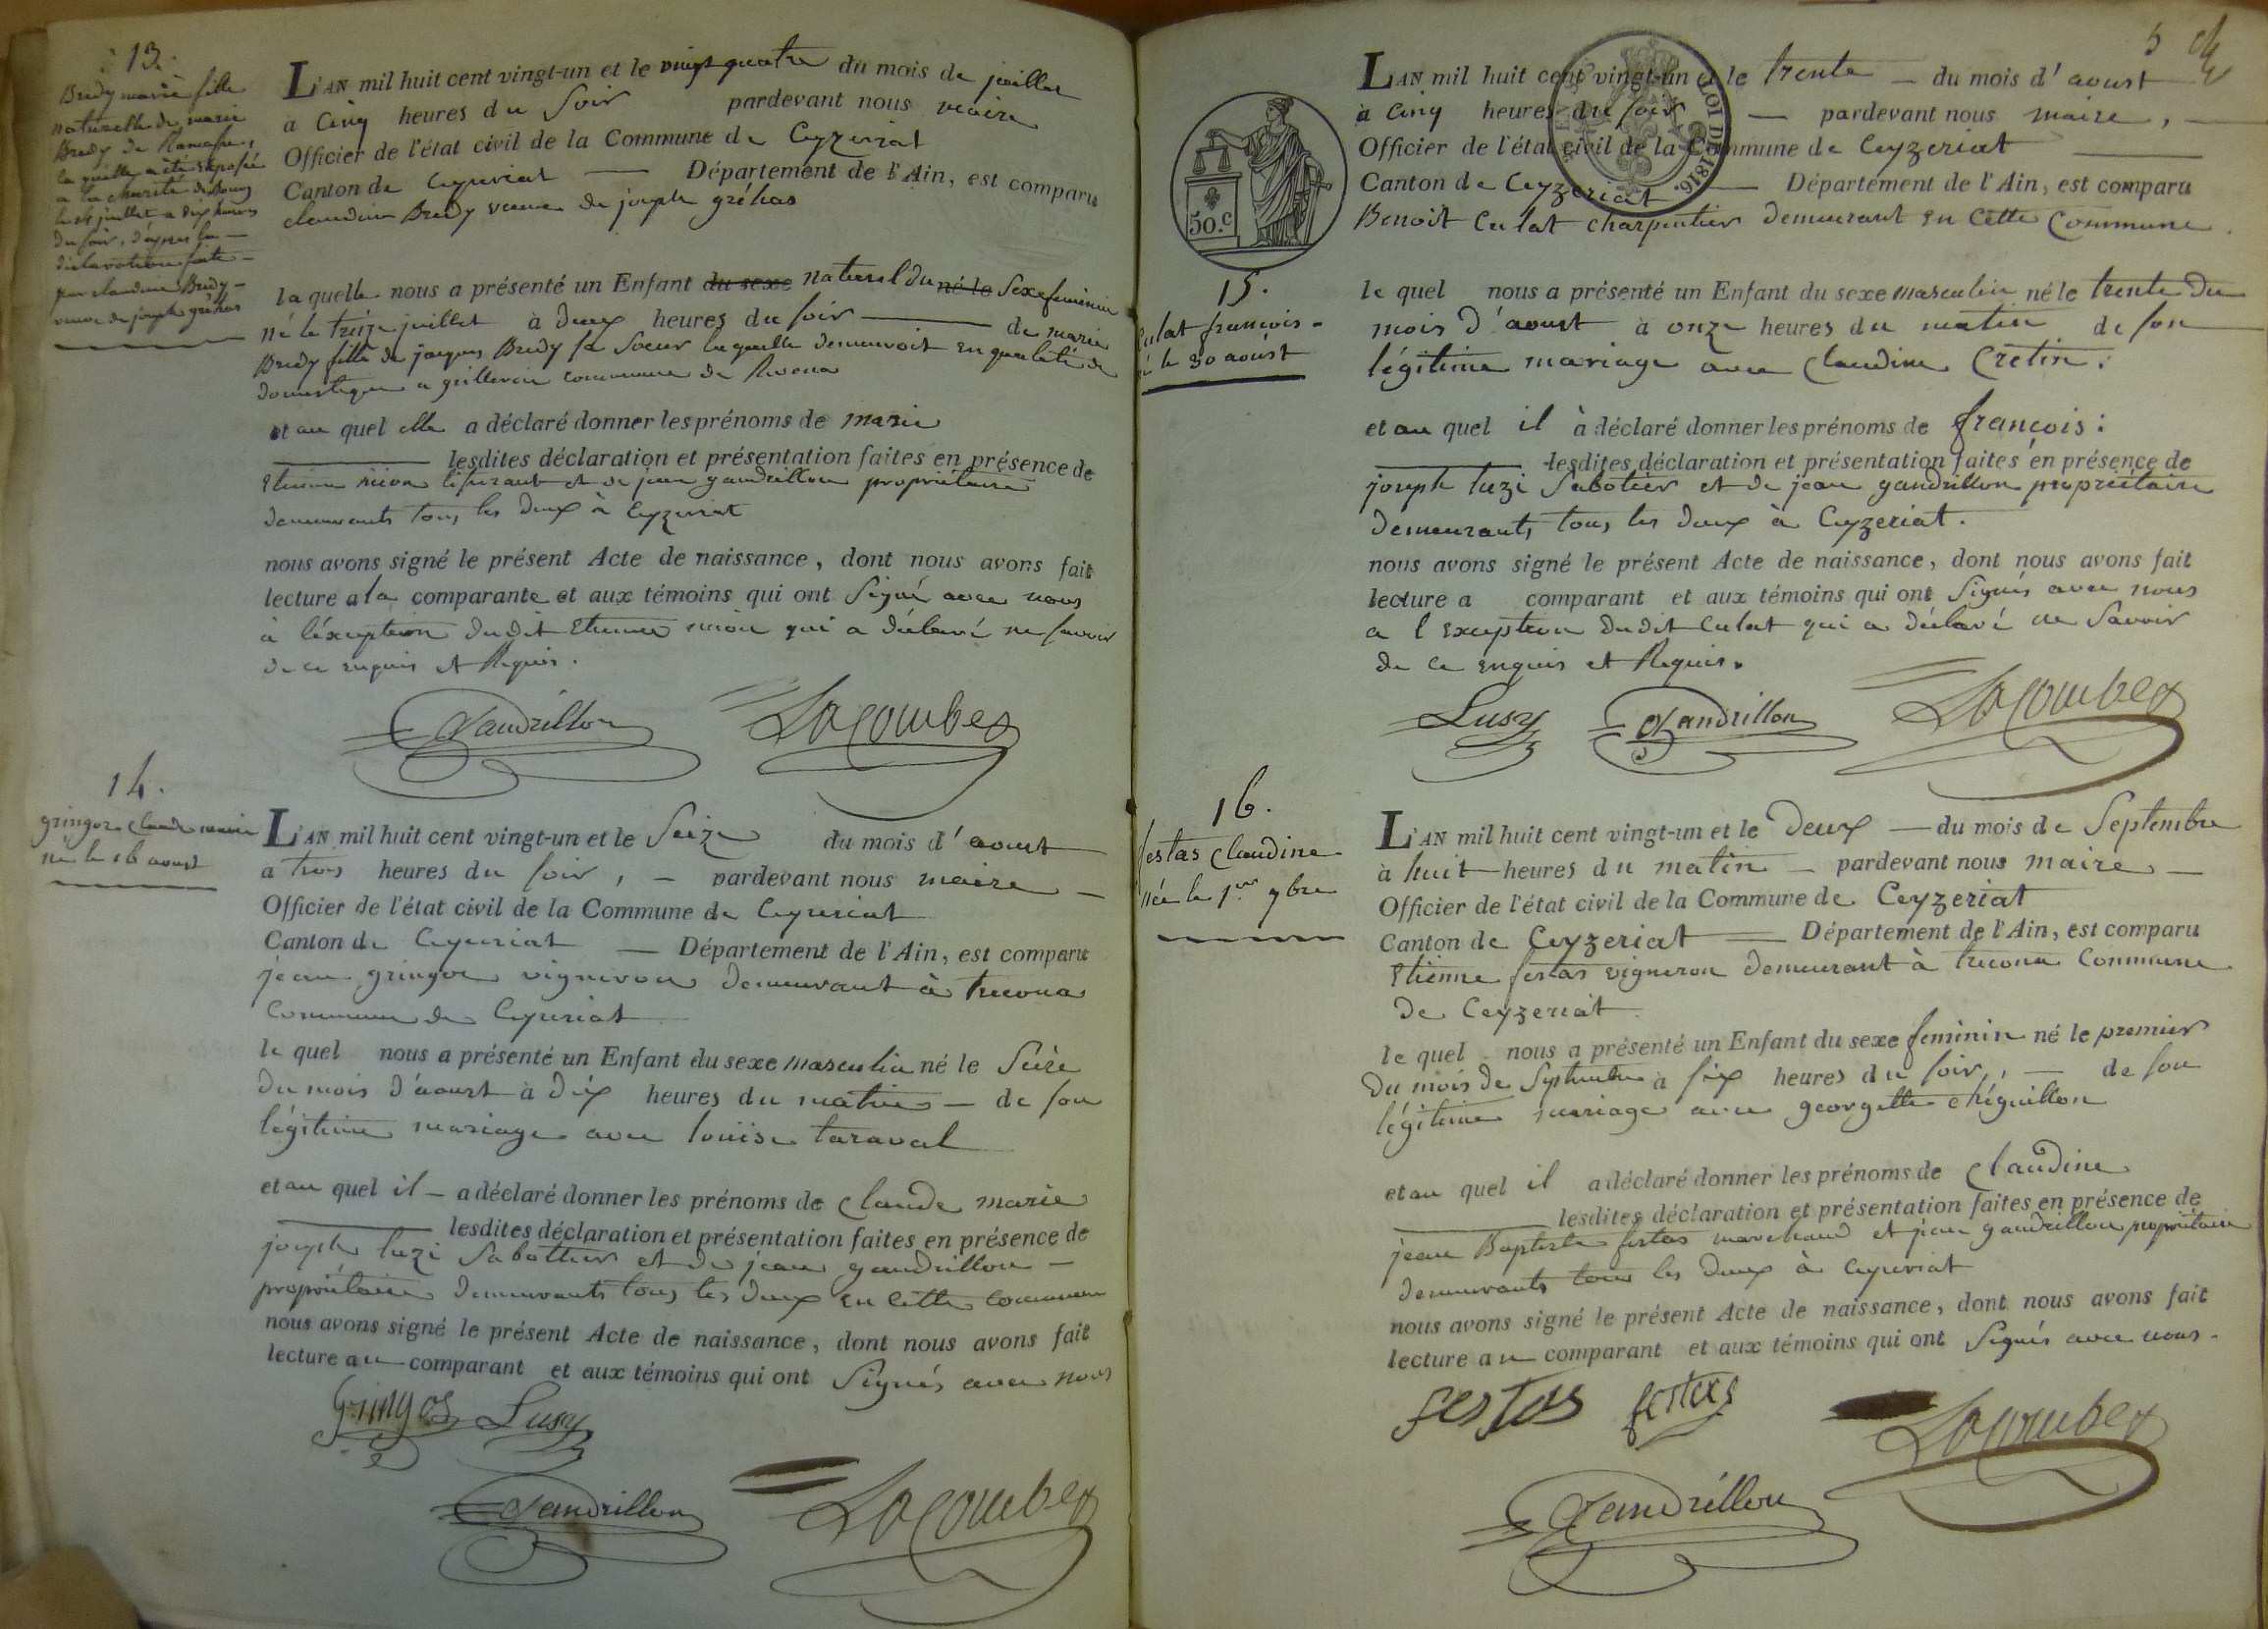 13.
Bredy marie fille
naturelle de marie
Bredy de Ramasse,
la quelle a été déposée
a la charité de Bourg
le juillet a dix heures
du soir, d'apres la
déclaration faite
par claudine Bredy
veuve de joseph gréhas
L'AN mil huit cent vingt-un et le vingt quatre du mois de juillet
à Cinq heures du Soir pardevant nous maire
Officier de l'état civil de la Commune de Ceyzeriat
Canton de Ceyzeriat — Département de l'Ain, est comparu
claudine Bredy veuve de joseph gréhas
la quelle nous a présenté un Enfant du sexe naturel du né le Sexe feminin
né le treize juillet à deux heures du soir — de marie
Bredy fille de jacques Bredy sa soeur laquelle demeuroit en qualité de
domestique a grillerin commune de Revona
et au quel elle a déclaré donner les prénoms de marie
— lesdites déclaration et présentation faites en présence de
Etienne nicon tisserant et de jean gandrillon propriétaire
demeurants tous les deux à Ceyzeriat
nous avons signé le présent Acte de naissance, dont nous avons fait
lecture a la comparante et aux témoins qui ont Signé avec nous
à l'éxception dudit Etienne nicon qui a déclaré ne savoir
de ce enquis et Requis.
Gandrillon Lacombe
14.
gringoz claude marie
né le 16 aoust
L'AN mil huit cent vingt-un et le Seize du mois d'aoust
a trois heures du soir, — pardevant nous maire —
Officier de l'état civil de la Commune de Ceyzeriat
Canton de Ceyzeriat — Département de l'Ain, est comparu
jean gringoz vigneron demeurant à trecona
Commune de Ceyzeriat
le quel nous a présenté un Enfant du sexe masculin né le Seize
du mois d'aoust à dix heures du matin — de son
légitime mariage avec louise taraval
et au quel il — a déclaré donner les prénoms de claude marie
— lesdites déclaration et présentation faites en présence de
joseph luzi Sabottier et de jean gandrillon —
propriétaire demeurants tous les deux en cette commune
nous avons signé le présent Acte de naissance, dont nous avons fait
lecture au comparant et aux témoins qui ont Signés avec nous
Gringos Lusy
Gandrillon Lacombe
5
LOI DE 1816.
50.c
L'AN mil huit cent vingt-un et le trente — du mois d'aoust
à Cinq heures du soir — pardevant nous maire, —
Officier de l'état civil de la Commune de Ceyzeriat —
Canton de Ceyzeriat — Département de l'Ain, est comparu
Benoit Culat charpentier demeurant en cette Commune.
15.
Culat francois
né le 30 aoust
le quel nous a présenté un Enfant du sexe masculin né le trente du
mois d'aoust à onze heures du matin de son
légitime mariage avec Claudine Cretin.
et au quel il à déclaré donner les prénoms de françois:
— lesdites déclaration et présentation faites en présence de
joseph luzi Sabotier et de jean gandrillon propriétaire
demeurants tous les deux à Ceyzeriat.
nous avons signé le présent Acte de naissance, dont nous avons fait
lecture a comparant et aux témoins qui ont Signés avec nous
a l'Exception dudit Culat qui a déclaré ne Savoir
de ce enquis et Requis.
Lusy Gandrillon Lacombe
16.
festas Claudine
née le 1er 7bre
L'AN mil huit cent vingt-un et le deux — du mois de Septembre
à huit heures du matin — pardevant nous maire —
Officier de l'état civil de la Commune de Ceyzeriat
Canton de Ceyzeriat — Département de l'Ain, est comparu
Etienne festas vigneron demeurant à trecona Commune
de Ceyzeriat
le quel nous a présenté un Enfant du sexe feminin né le premier
du mois de Septembre à six heures du soir, — de son
légitime mariage avec georgette chéguillon
et au quel il a déclaré donner les prénoms de claudine
— lesdites déclaration et présentation faites en présence de
jean Baptiste festas marchand et jean gandrillon propriétaire
demeurants tous les deux à Ceyzeriat
nous avons signé le présent Acte de naissance, dont nous avons fait
lecture au comparant et aux témoins qui ont Signés avec nous.
festas festas Lacombe
Gandrillon